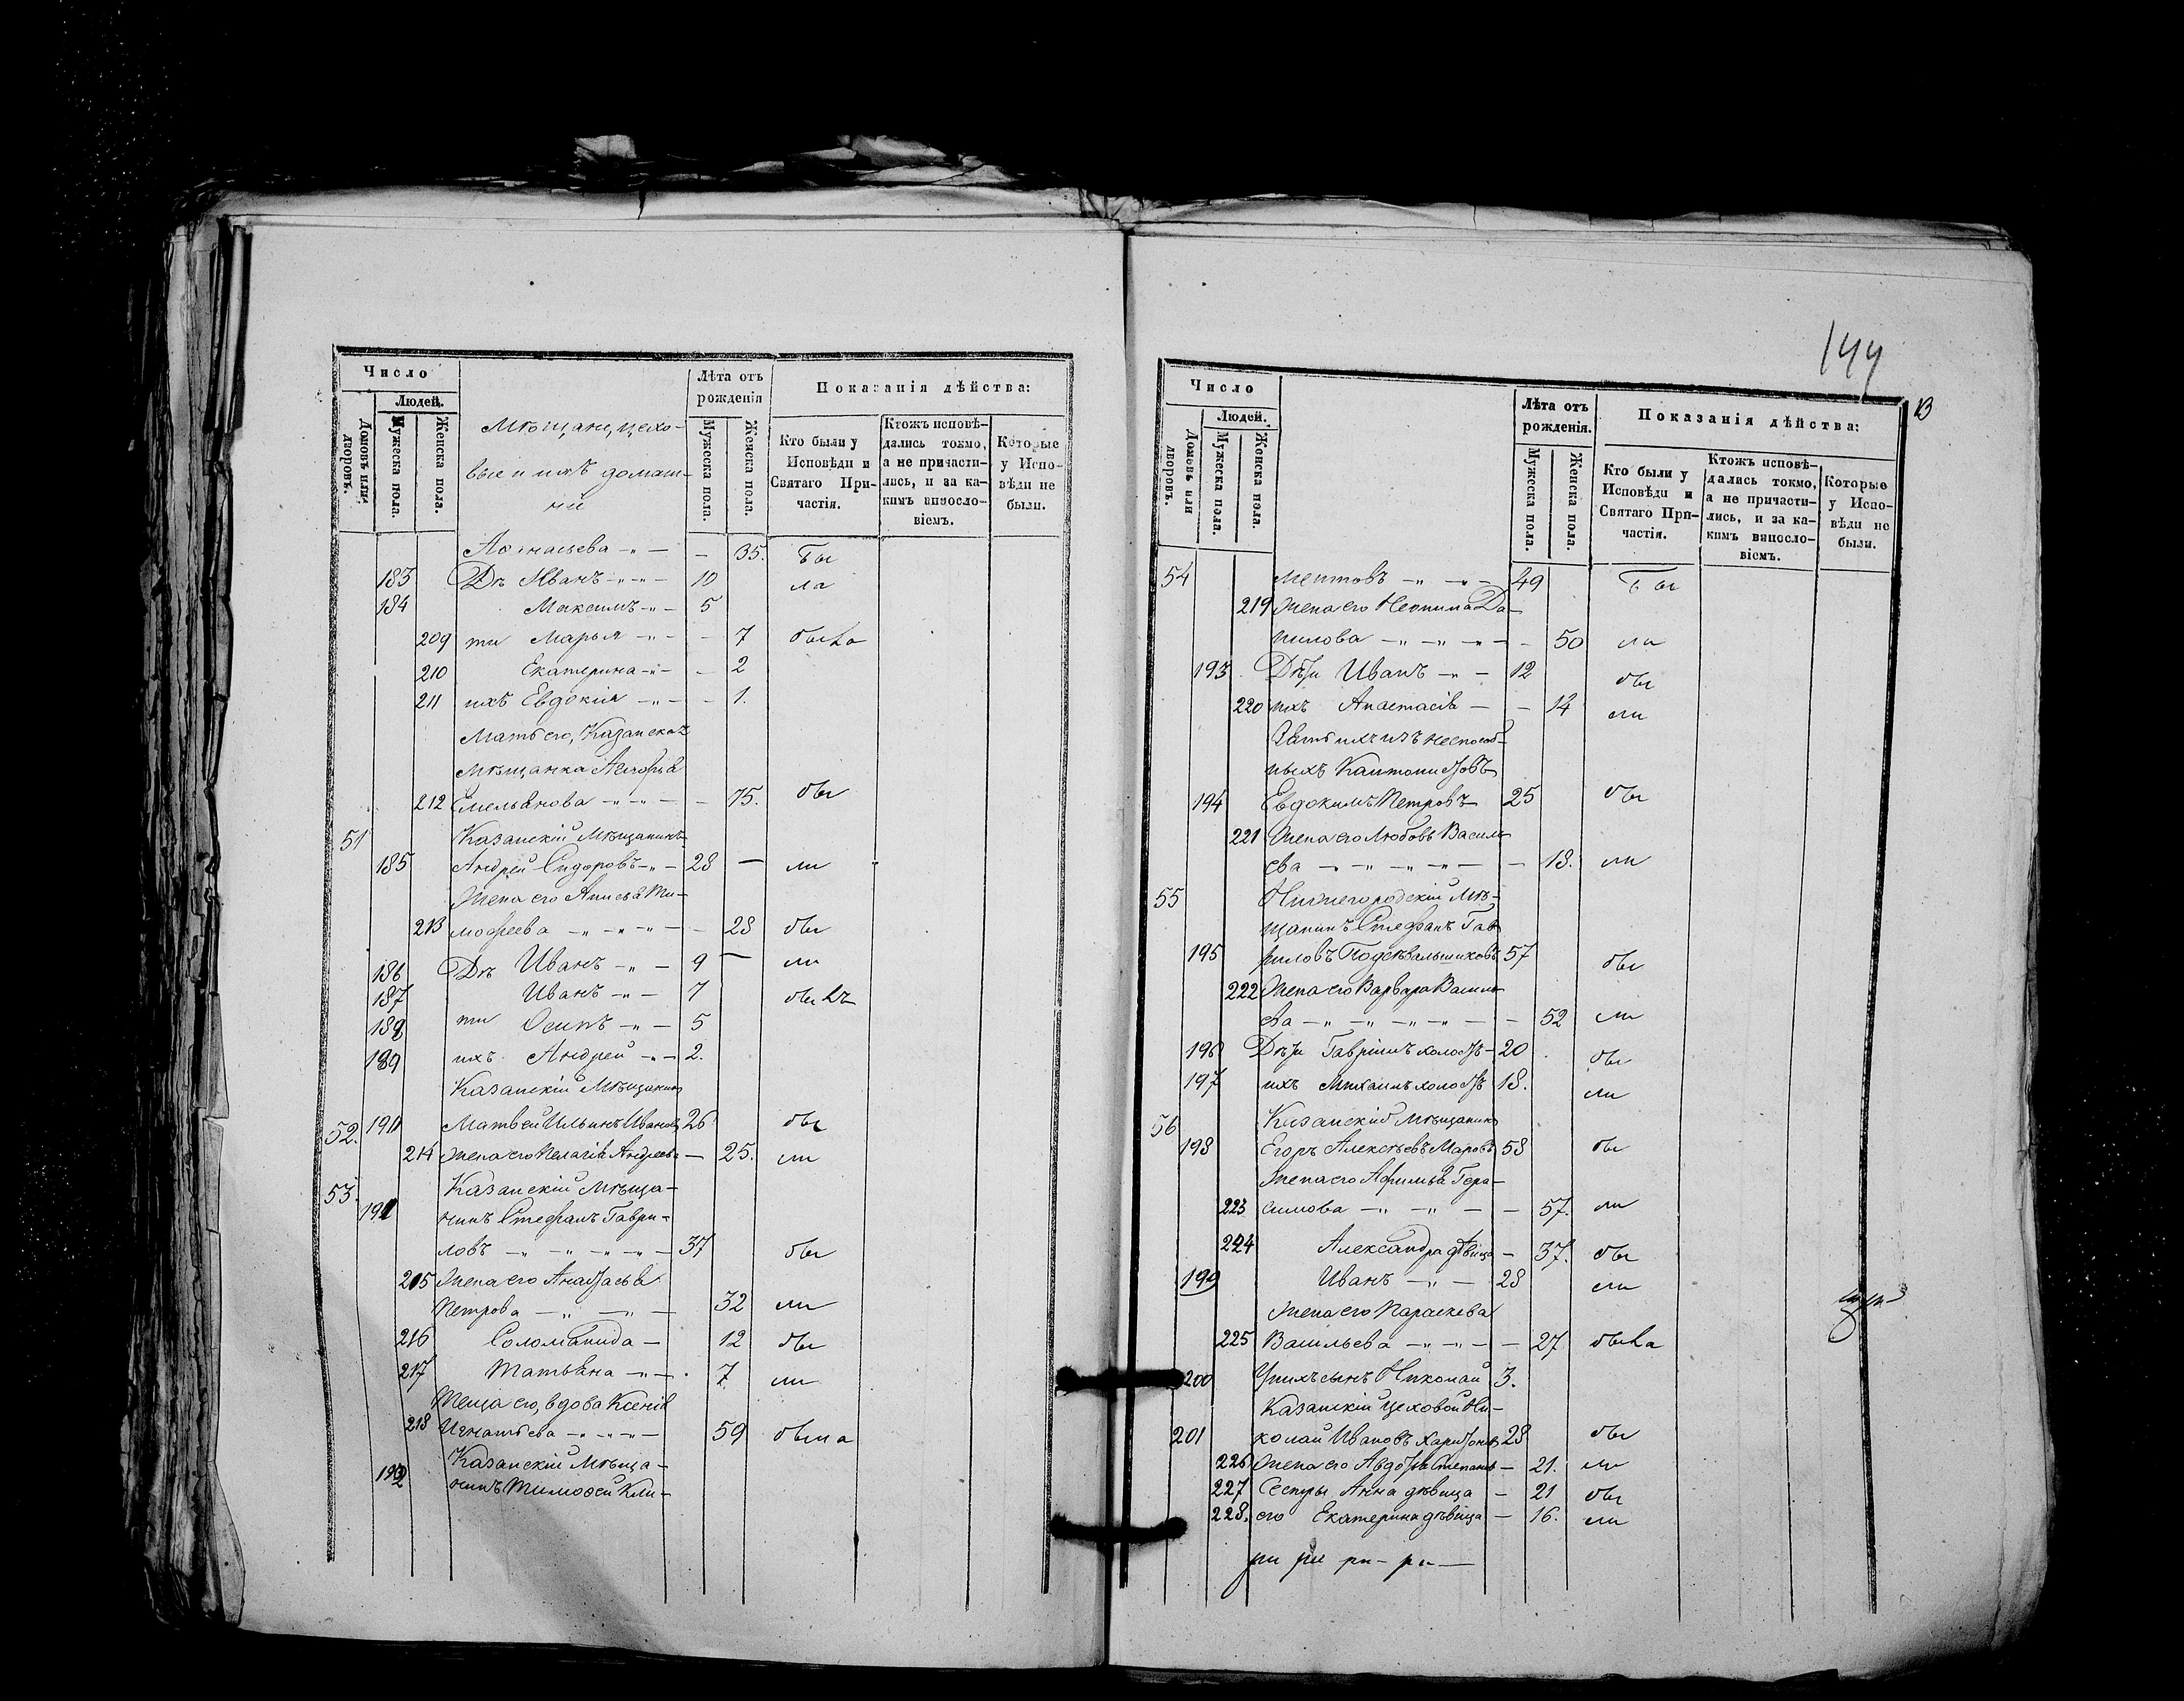 Число
Людей.
Домовъ или дворовъ.
Мужеска пола.
Женска пола.
Мѣщане, цехо-
вые и ихъ домаш-
ніи
Лѣта отъ рожденія
Мужеска пола.
Женска пола.
Показанія дѣйства:
Кто были у Исповѣди и Святаго При-частія.
Ктожъ исповѣ-дались токмо, а не причасти-лись, и за ка-кимъ винословіемъ.
Которые у Испо-вѣди не были.
-"- — - 35. Бы
183 Дѣ Иванъ -"-"- 10 ла
184 Максимъ -"- 5
209 ти Марья -"- - 7 была
210 Екатерина -"- - 2
211 ихъ Евдокія -"- - 1.
Мать его, Казанская
Мѣщанка
212 Емельянова -"-"- - 75. бы
51 Казанскій Мѣщанинъ
185 Андрей Сидоровъ -"- 28 — ли
Жена его Анисья Ти-
213 мофеева -"-"-"- - 28 бы
186 Дѣ Иванъ -"- 9 — ли
187 Иванъ -"- 7 былъ
188 ти Осипъ -"- 5
189 ихъ Андрей -"- 2.
Казанскій Мѣщанинъ
52. 190 Матвей Ильинъ Ивановъ 26 бы
214 Жена его Пелагія Андреева — 25. ли
53. Казанскій Мѣща-
191 нинъ Стефанъ Гаври-
ловъ -"-"-"- 37 бы
215 Жена его Анастасья
Петрова -"-"- 32 ли
216 Соломанида — 12 бы
217 Татьяна -"- 7 ли
Теща его, вдова Ксенія
218 Игнатьева -"-"- 59 была
Казанскій Мѣща-
192 нинъ Тимофей Кли-
144
13
Число
Людей.
Домовъ или дворовъ.
Мужеска пола.
Женска пола.
Лѣта отъ рожденія.
Мужеска пола.
Женска пола.
Показанія дѣйства:
Кто были у Исповѣди и Святаго При-частія.
Ктожъ исповѣ-дались токмо, а не причасти-лись, и за ка-кимъ винословіемъ.
Которые у Испо-вѣди не были.
54 ментовъ -"-"- 49 Бы
219 Жена его Неонила Да-
нилова -"-"-"- - 50 ли
193 Дѣти Иванъ -"- 12 бы
220 ихъ Анастасія — - 14 ли
Зять ихъ изъ неспособ-
ныхъ Кантонистовъ
194 Евдокимъ Петровъ 25 бы
221 Жена его Любовь Василь-
ева -"-"-"- — 18. ли
55 Нижегородскій Мѣ-
щанинъ Стефанъ Гав-
195 риловъ 57 бы
222 Жена его Варвара Василь-
ева -"-"-"-"- - 52 ли
196 Дѣти Гавріилъ холостъ - 20 бы
197 ихъ Михаилъ холостъ 18. ли
56 Казанскій Мѣщанинъ
198 Егоръ Алексѣевъ Маровъ 58 бы
Жена его Афимья Гера-
223 симова -"-"- - 57. ли
224 Александра дѣвица - 37. бы
199 Иванъ -"- 28 ли
Жена его Параскева
225 Васильева -"-"- - 27 была
200 У нихъ сынъ Николай 3.
Казанскій Цеховой Ни-
201 колай Ивановъ Харитоновъ 28 бы
226 Жена его Авдотья Степанов - 21. ли
227 Сестры Анна дѣвица - 21 бы
228. его Екатерина дѣвица - 16. ли